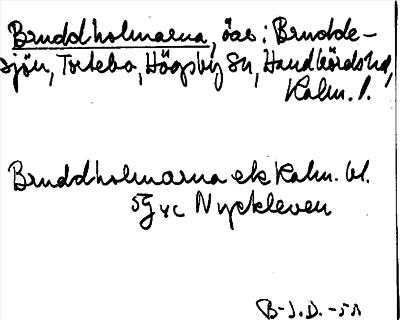 Bruddholmarna, öar i Brudde-
sjön, Torlebo, Högsby Sn, Handbörds hd,
Kalm. l.
Bruddholmarna ek Kalm. bl.
5G vc Nyckleven
B-J.D. -51